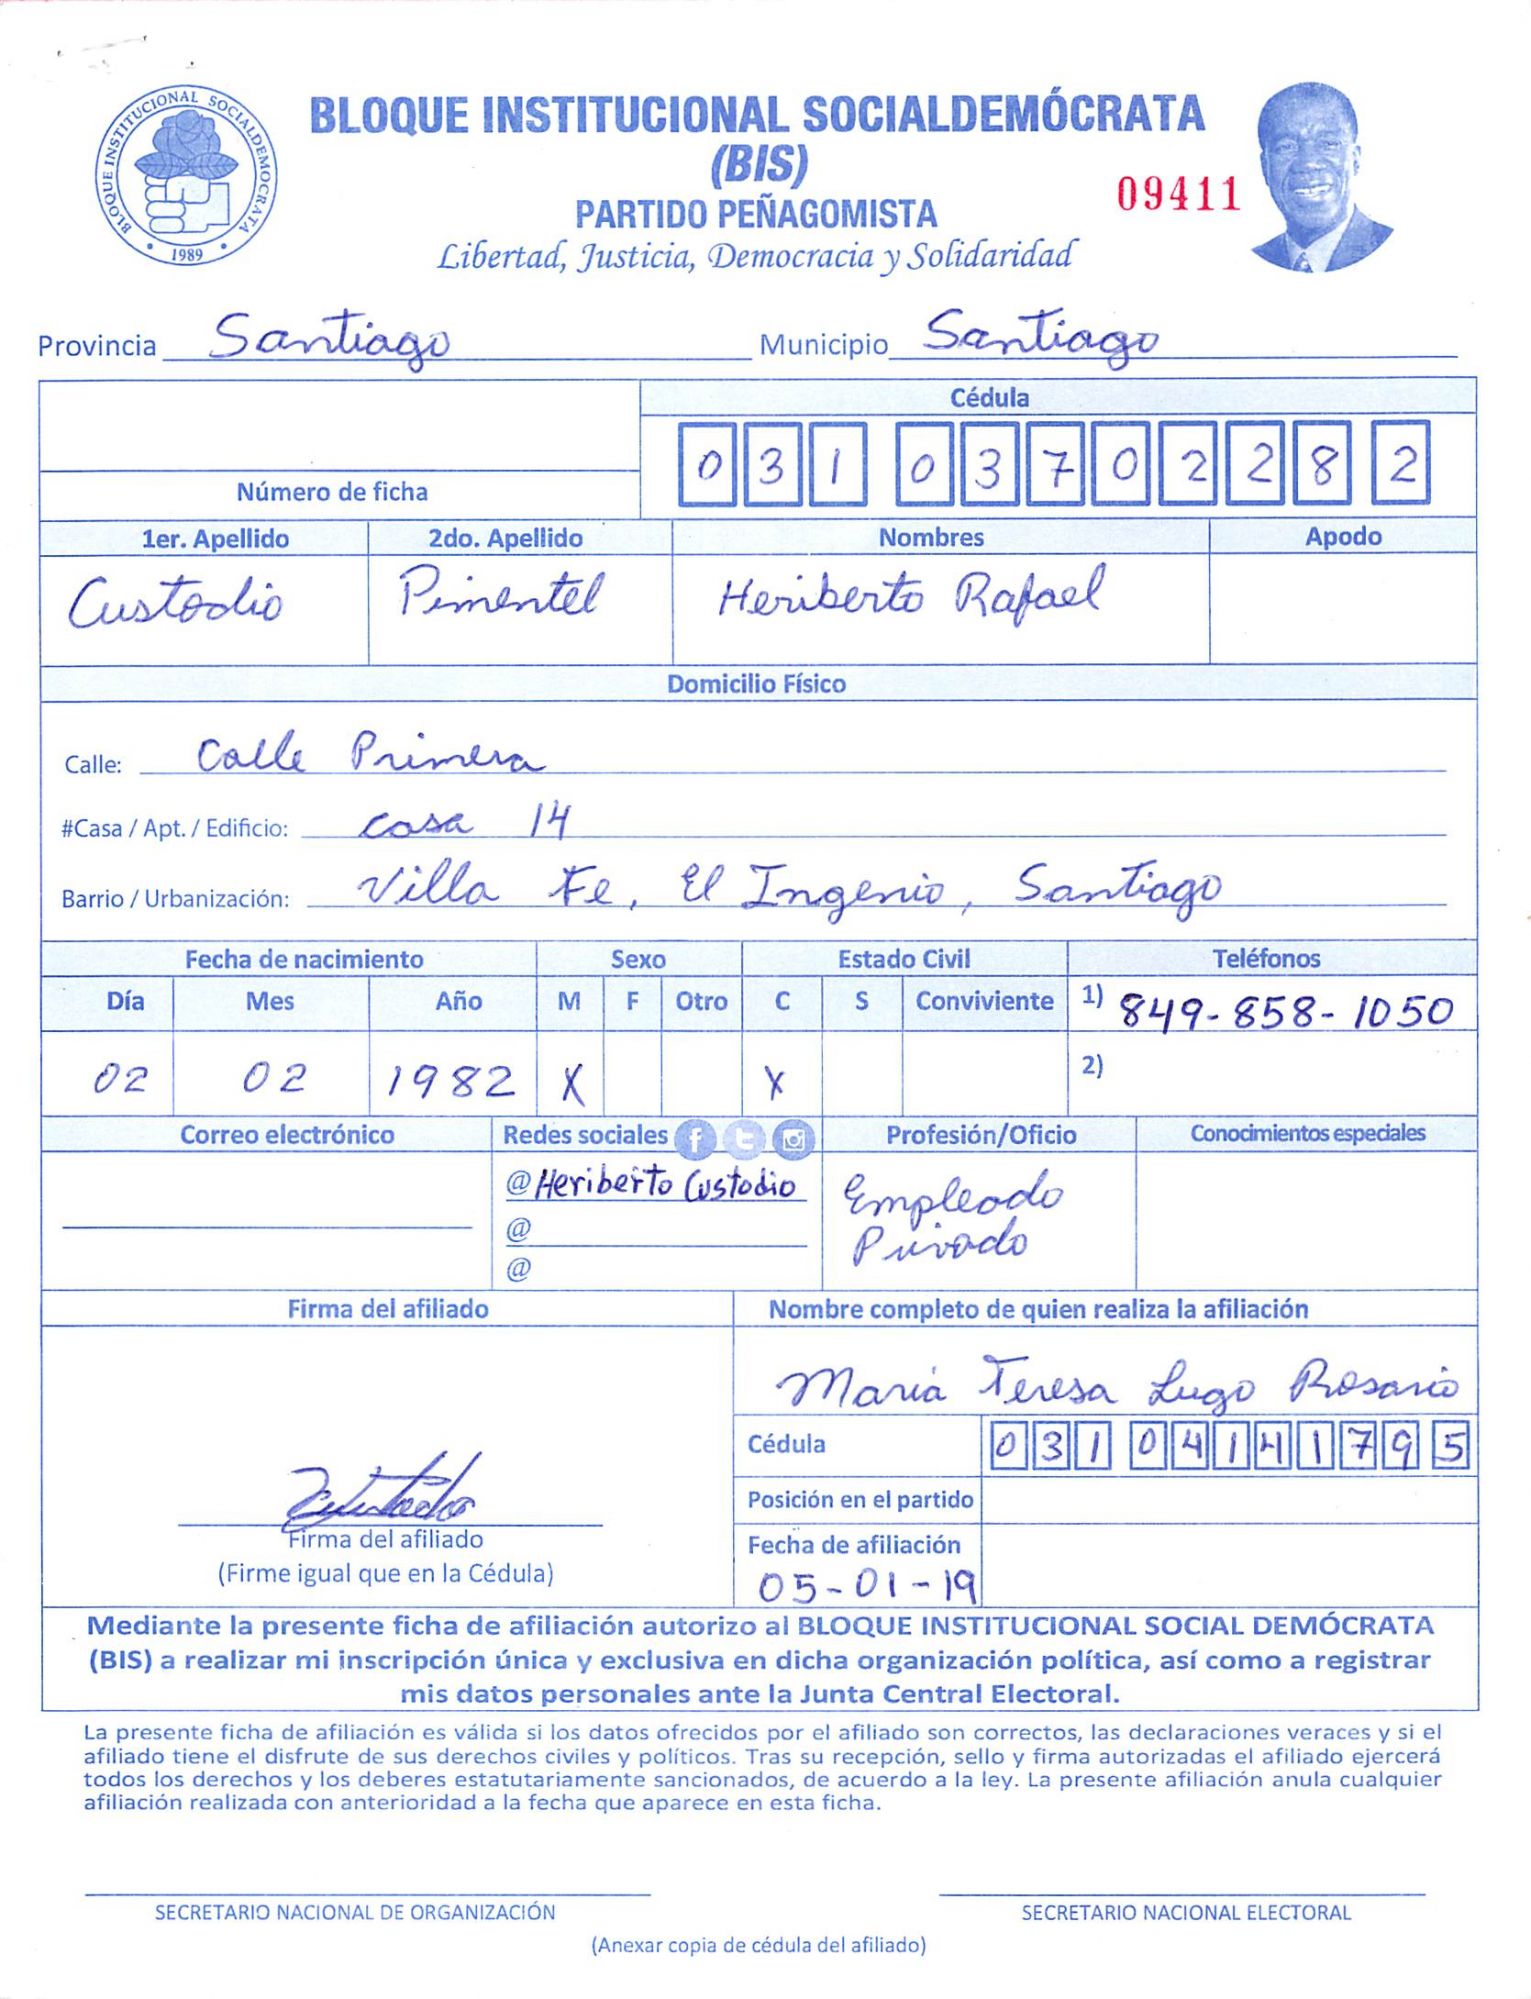 BLOQUE INSTITUCIONAL SOCIALDEMOCRATA
1989
BLOQUE INSTITUCIONAL SOCIALDEMÓCRATA
(BIS)
PARTIDO PEÑAGOMISTA
09411
Libertad, Justicia, Democracia y Solidaridad
Provincia Santiago Municipio Santiago
Cédula
0 3 1 0 3 7 0 2 2 8 2
Número de ficha
1er. Apellido 2do. Apellido Nombres Apodo
Custodio Pimentel Heriberto Rafael
Domicilio Físico
Calle: Calle Primera
#Casa / Apt. / Edificio: casa 14
Barrio / Urbanización: Villa Fe, El Ingenio, Santiago
Fecha de nacimiento Sexo Estado Civil Teléfonos
Día Mes Año M F Otro C S Conviviente 1) 849-858-1050
02 02 1982 X X 2)
Correo electrónico Redes sociales f t Profesión/Oficio Conocimientos especiales
@Heriberto Custodio Empleado
@ Privado
@
Firma del afiliado Nombre completo de quien realiza la afiliación
María Teresa Lugo Rosario
Cédula 0 3 1 0 4 1 4 1 7 9 5
Posición en el partido
Firma del afiliado Fecha de afiliación
(Firme igual que en la Cédula) 05-01-19
Mediante la presente ficha de afiliación autorizo al BLOQUE INSTITUCIONAL SOCIAL DEMÓCRATA
(BIS) a realizar mi inscripción única y exclusiva en dicha organización política, así como a registrar
mis datos personales ante la Junta Central Electoral.
La presente ficha de afiliación es válida si los datos ofrecidos por el afiliado son correctos, las declaraciones veraces y si el
afiliado tiene el disfrute de sus derechos civiles y políticos. Tras su recepción, sello y firma autorizadas el afiliado ejercerá
todos los derechos y los deberes estatutariamente sancionados, de acuerdo a la ley. La presente afiliación anula cualquier
afiliación realizada con anterioridad a la fecha que aparece en esta ficha.
SECRETARIO NACIONAL DE ORGANIZACIÓN SECRETARIO NACIONAL ELECTORAL
(Anexar copia de cédula del afiliado)